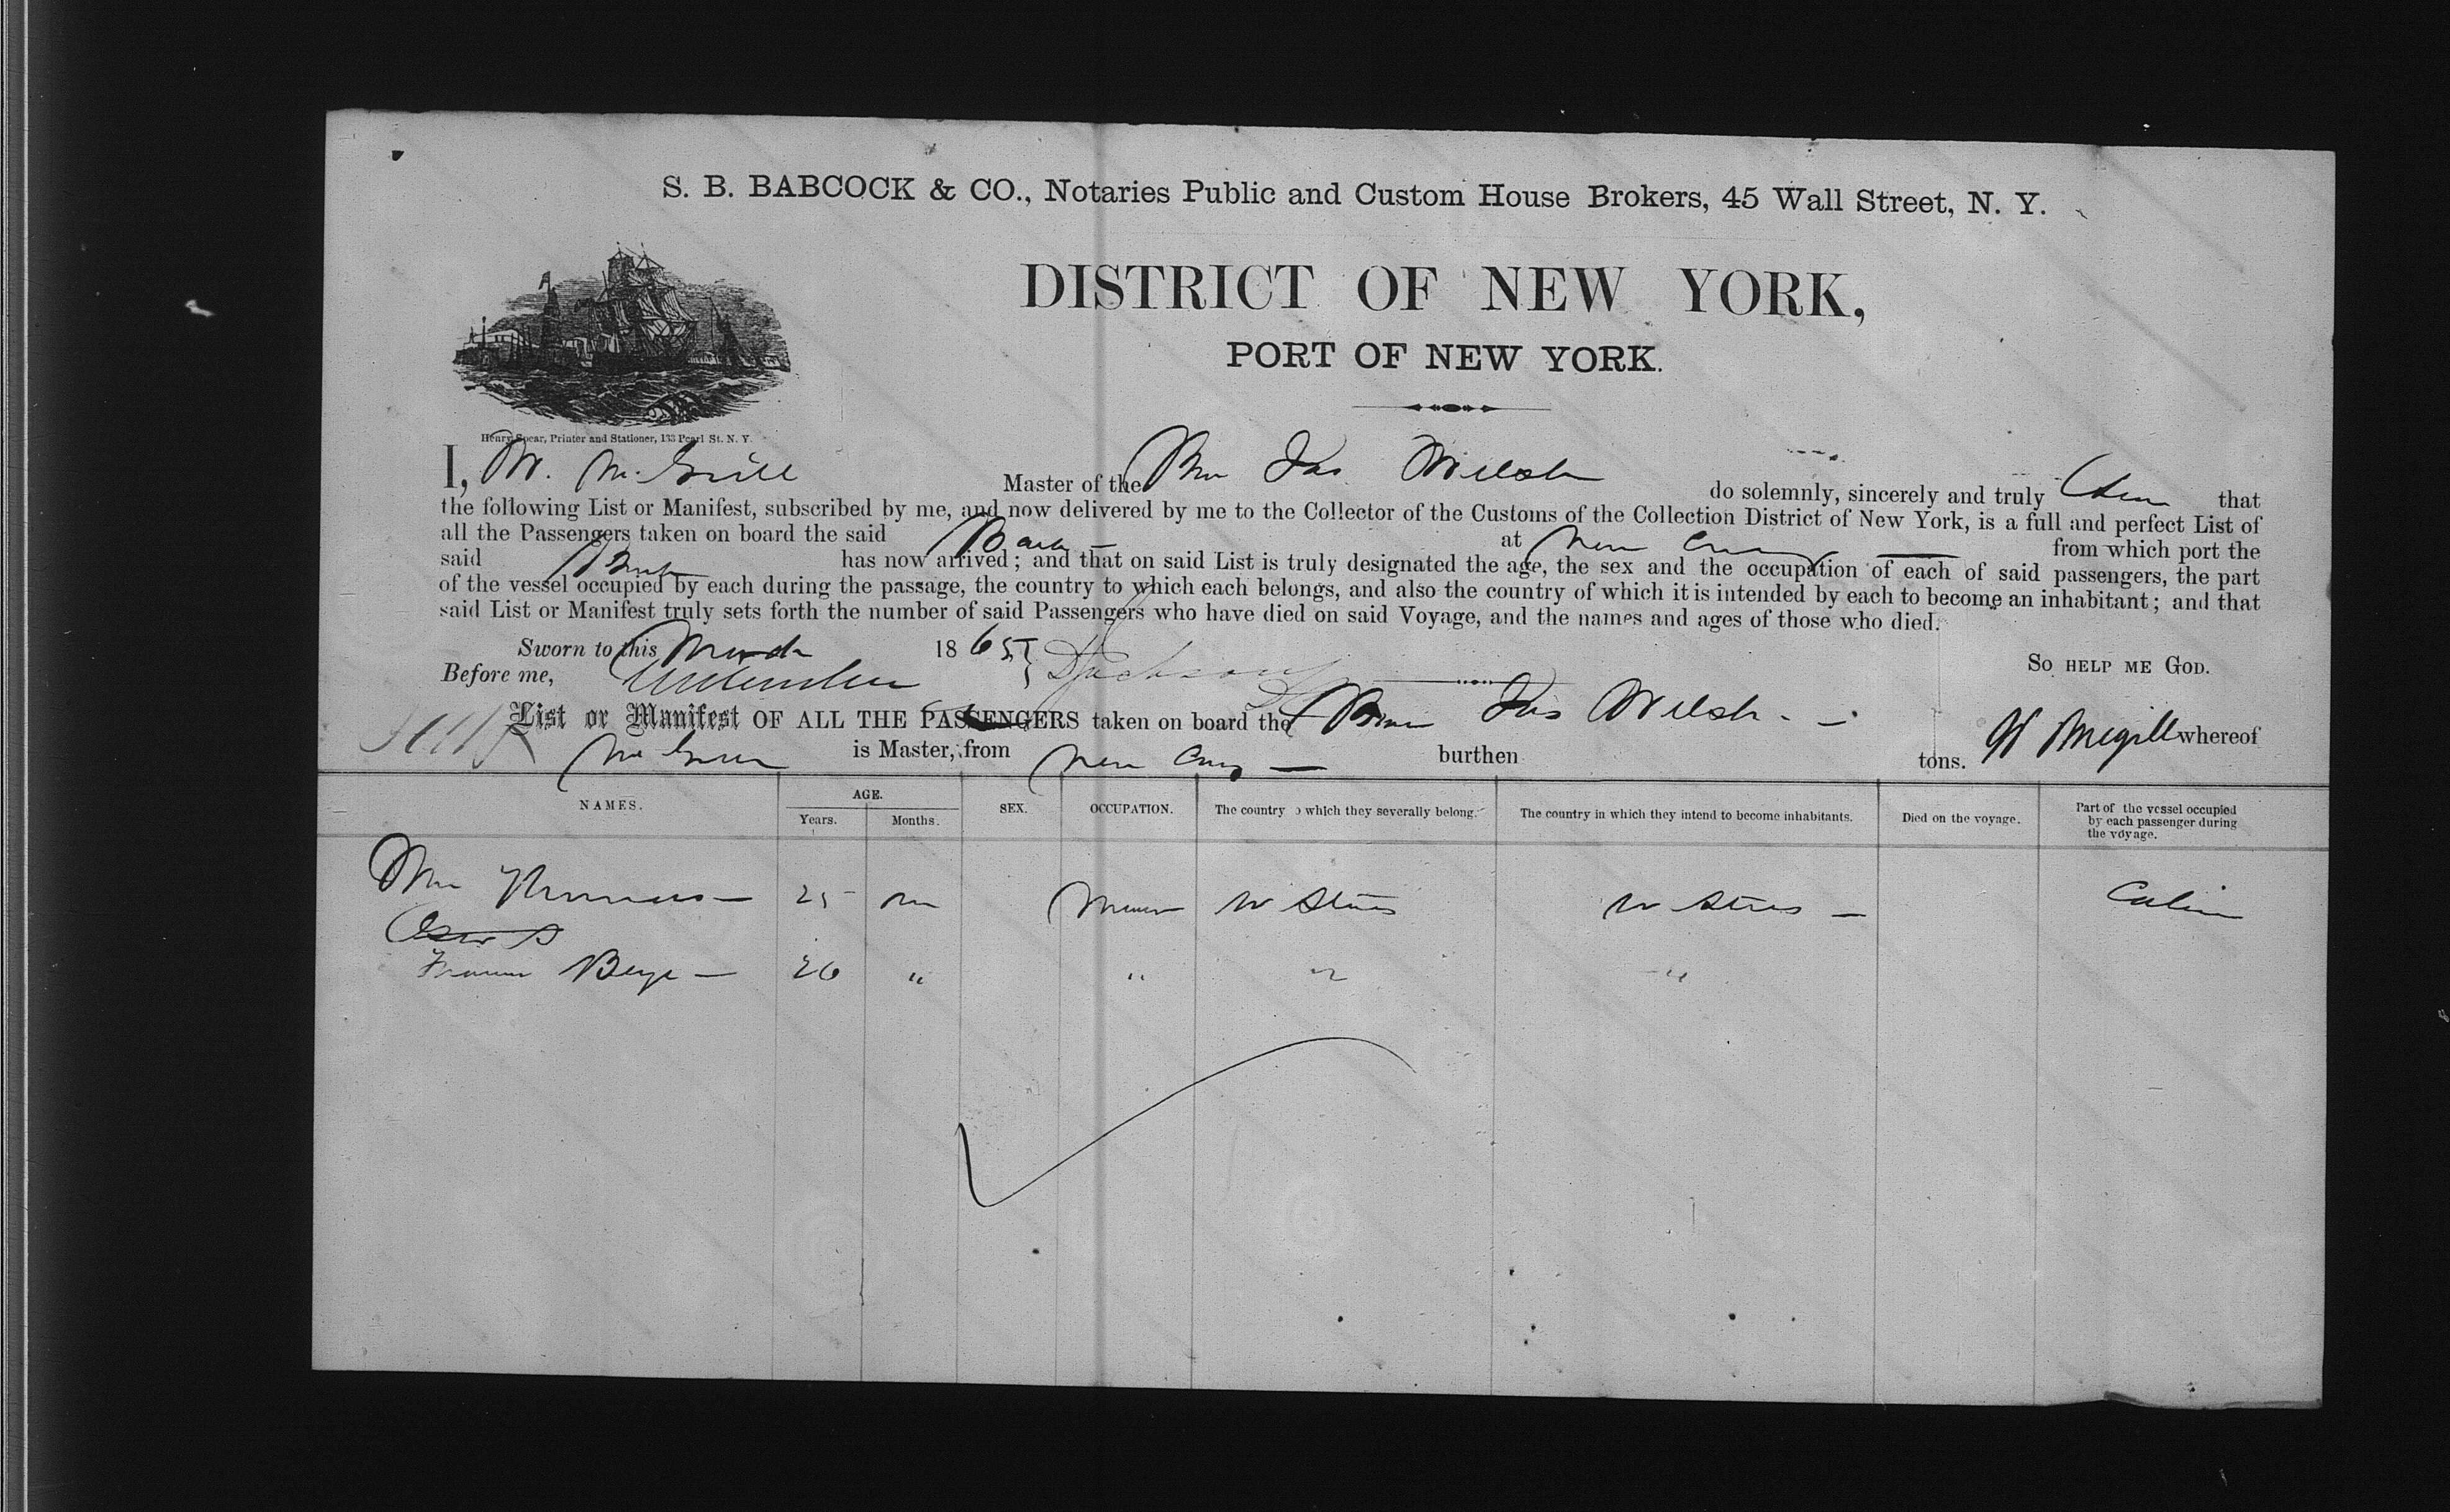 S. B. BABCOCK & CO., Notaries Public and Custom House Brokers, 45 Wall Street, N. Y.
DISTRICT OF NEW YORK,
PORT OF NEW YORK.
Henry Spear, Printer and Stationer, 133 Pearl St. N. Y.
I, W. McGill Master of the Jas. Welsh do solemnly, sincerely and truly that
the following List or Manifest, subscribed by me, and now delivered by me to the Collector of the Customs of the Collection District of New York, is a full and perfect List of
all the Passengers taken on board the said Bark at from which port the
said Bark has now arrived; and that on said List is truly designated the age, the sex and the occupation of each of said passengers, the part
of the vessel occupied by each during the passage, the country to which each belongs, and also the country of which it is intended by each to become an inhabitant; and that
said List or Manifest truly sets forth the number of said Passengers who have died on said Voyage, and the names and ages of those who died.
Sworn to this March 1865 }
So HELP ME GOD.
Before me, Jackson
List or Manifest OF ALL THE PASSENGERS taken on board the Jas Welsh
McGill is Master, from burthen tons. W Megill whereof
NAMES. AGE. Years. Months. SEX. OCCUPATION. The country o which they severally belong. The country in which they intend to become inhabitants. Died on the voyage. Part of the vessel occupied by each passenger during the voyage.
Wm 25 U States U States Cabin
26 " " " "